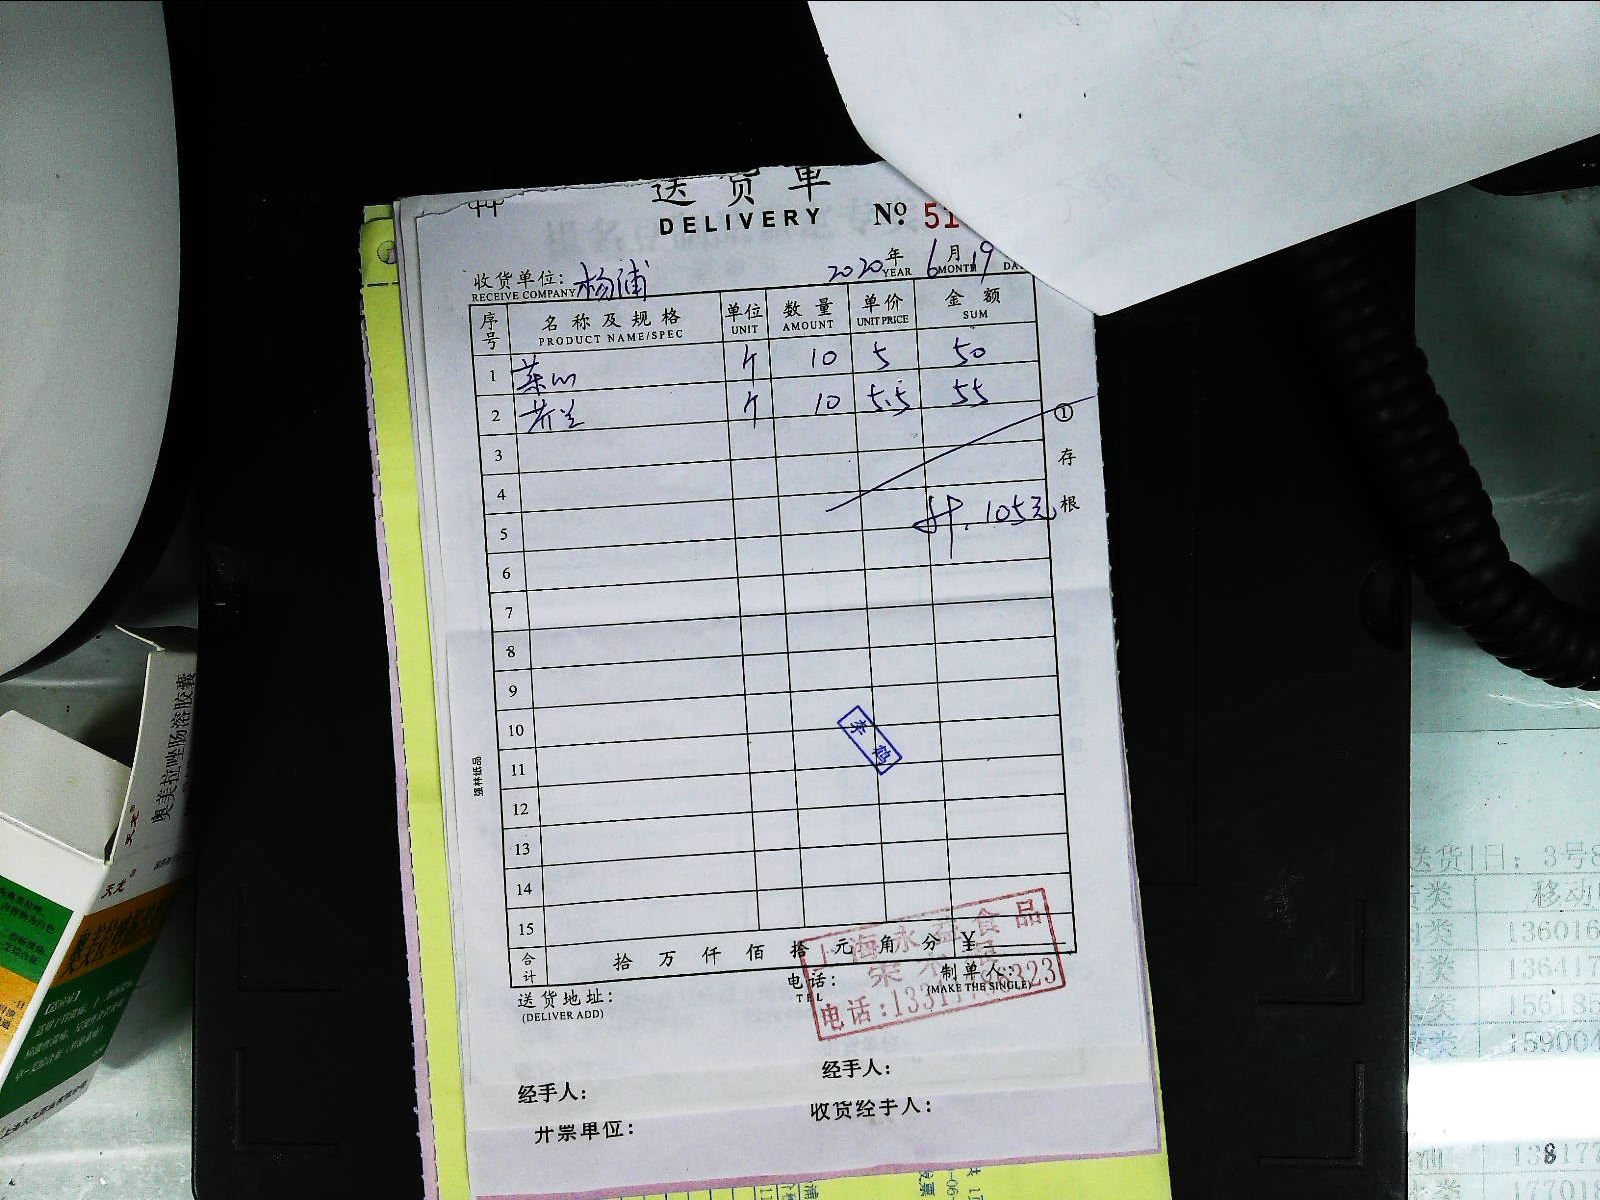 送货单
DELIVERY № 51
收货单位: 杨浦 2020年 6月 19
RECEIVE COMPANY YEAR MONTH DA
序号 名称及规格 单位 数量 单价 金额
PRODUCT NAME/SPEC UNIT AMOUNT UNIT PRICE SUM
1 菜心 斤 10 5 50
2 芥兰 斤 10 5.5 55
3
4
5 计. 105元
6
7
8
9
10
11
12
13
14
15
合计 拾万仟佰拾元角分 ¥
① 存根
强林纸品
送货地址: 电话: 制单人:
(DELIVER ADD) TEL (MAKE THE SINGLE)
上海永益食品
电话:133
323
经手人: 经手人:
开票单位: 收货经手人:
奥美拉唑肠溶胶囊
天龙®
天龙®
送货日: 3号8
移动
136016
136417
156185
159004
13817
177018